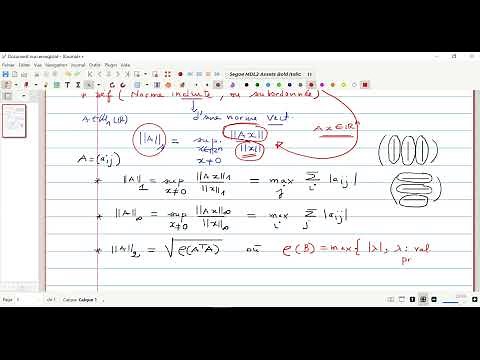 Document non enregistré - Xournal++
Fichier Édition Vue Navigation Journal Outils Plugin Aide
Segoe MDL2 Assets Bold Italic 11
* Def ( Norme induite, ou subordonnée )
A ∈ (ℝ) d'une norme vect.
||A|| = sup x∈ℝⁿ x≠0 ||Ax|| / ||x||
Ax ∈ ℝⁿ
A = (aij)
* ||A||₁ = sup x≠0 ||Ax||₁ / ||x||₁ = max j Σ i |aij|
* ||A||∞ = sup x≠0 ||Ax||∞ / ||x||∞ = max i Σ j |aij|
* ||A||₂ = √ρ(AᵀA) où ρ(B) = max { |λ| ; λ : val
pr
Page Calque Calque 1